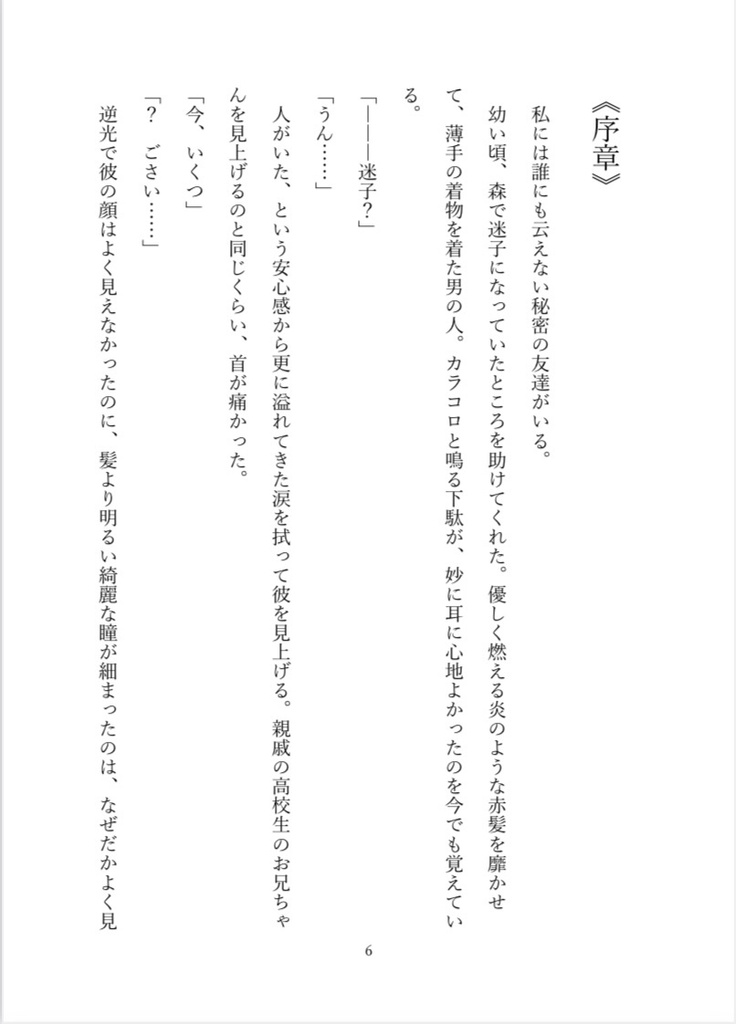 《序章》
私には誰にも云えない秘密の友達がいる。
幼い頃、森で迷子になっていたところを助けてくれた。優しく燃える炎のような赤髪を靡かせ
て、薄手の着物を着た男の人。カラコロと鳴る下駄が、妙に耳に心地よかったのを今でも覚えてい
る。
「―――迷子？」
「うん……」
人がいた、という安心感から更に溢れてきた涙を拭って彼を見上げる。親戚の高校生のお兄ちゃ
んを見上げるのと同じくらい、首が痛かった。
「今、いくつ」
「？　ごさい……」
逆光で彼の顔はよく見えなかったのに、髪より明るい綺麗な瞳が細まったのは、なぜだかよく見
6